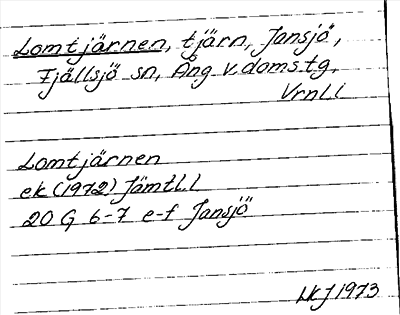 Lomtjärnen, tjärn, Jansjö,
Fjällsjö sn, Ång v. doms.tg.
Vrnl.l
Lomtjärnen
ek (1972) Jämtl.l
20 G 6-7 e-f Jansjö
LKJ 1973